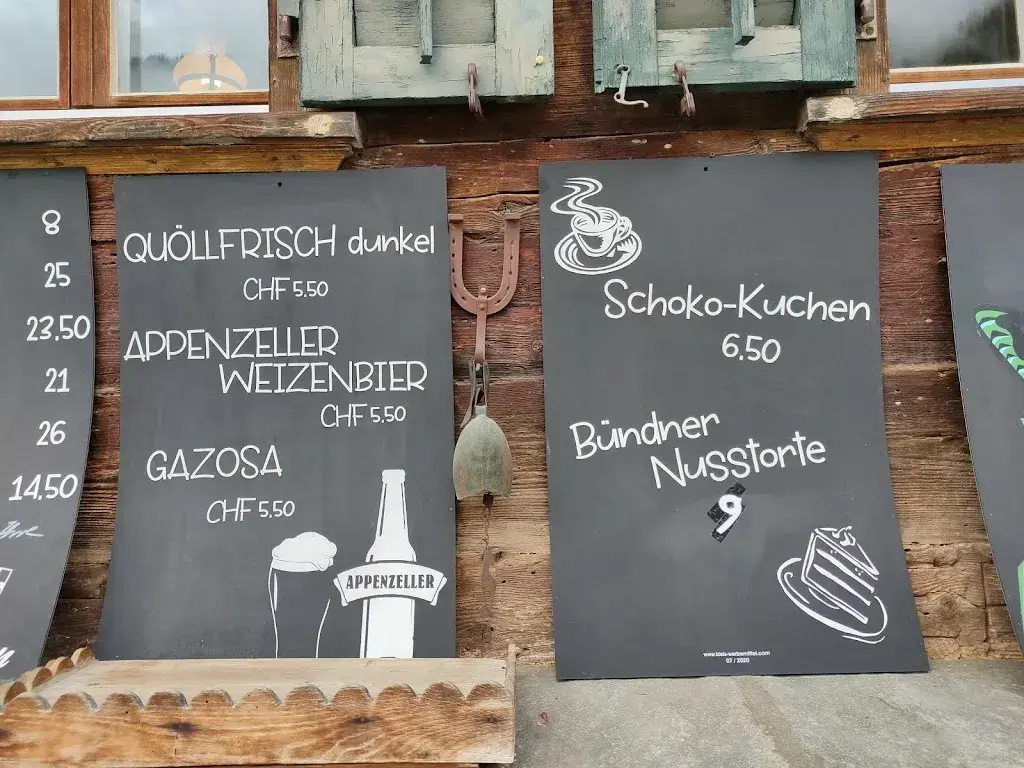 8
25
23,50
21
26
14.50
QUÖLLFRISCH dunkel
CHF 5.50
APPENZELLER
WEIZENBIER
CHF 5.50
GAZOSA
CHF 5.50
APPENZELLER
Schoko-Kuchen
6.50
Bündner
Nusstorte
9
07 / 2020